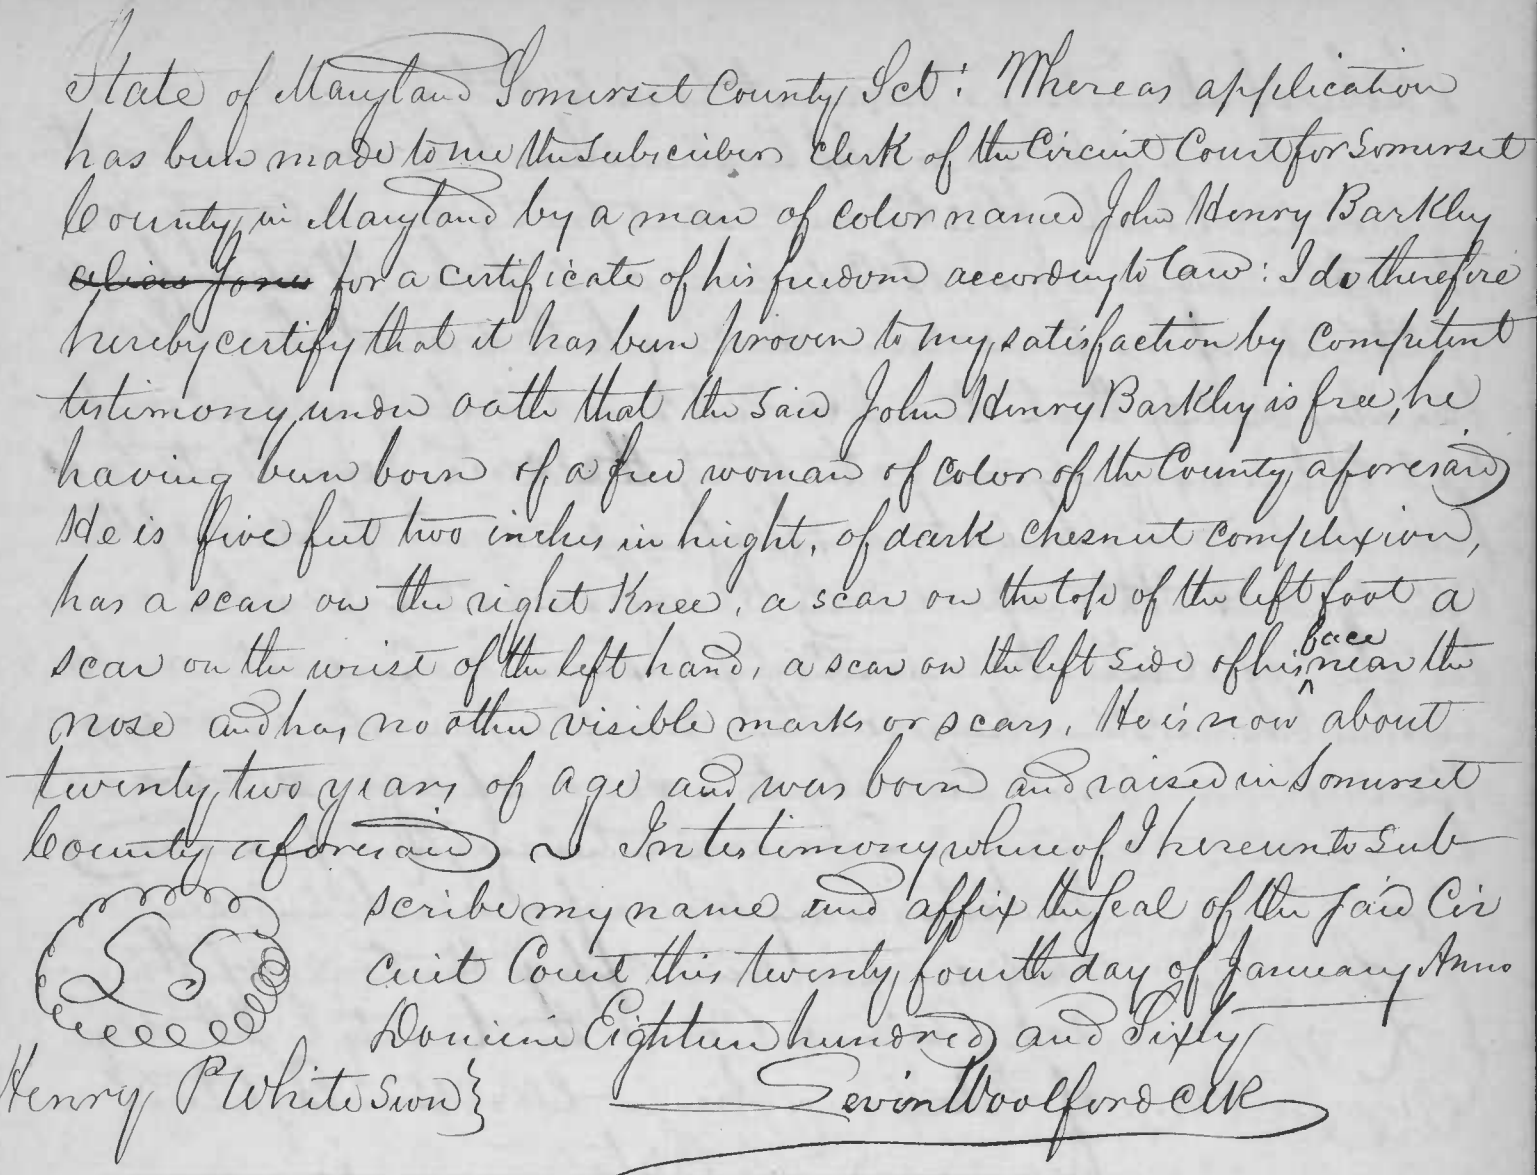 State of Maryland Somerset County Sct: Whereas application
has been made to me the subscriber Clerk of the Circuit Court for Somerset
County in Maryland by a man of color named John Henry Barkley
alias Jones for a certificate of his freedom according to law: I do therefore
hereby certify that it has been proven to my satisfaction by competent
testimony under oath that the said John Henry Barkley is free, he
having been born of a free woman of color of the County aforesaid
He is five feet two inches in height, of dark chesnut complexion,
has a scar on the right Knee, a scar on the top of the left foot a
scar on the wrist of the left hand, a scar on the left side of his face near the
nose and has no other visible marks or scars. He is now about
twenty two years of age and was born and raised in Somerset
County aforesaid ~ In testimony whereof I hereunto sub
scribe my name and affix the seal of the said Cir
cuit Court this twenty fourth day of January Anno
L S
Domini Eighteen hundred and Sixty
Henry P White sworn}
Levin Woolford Clk